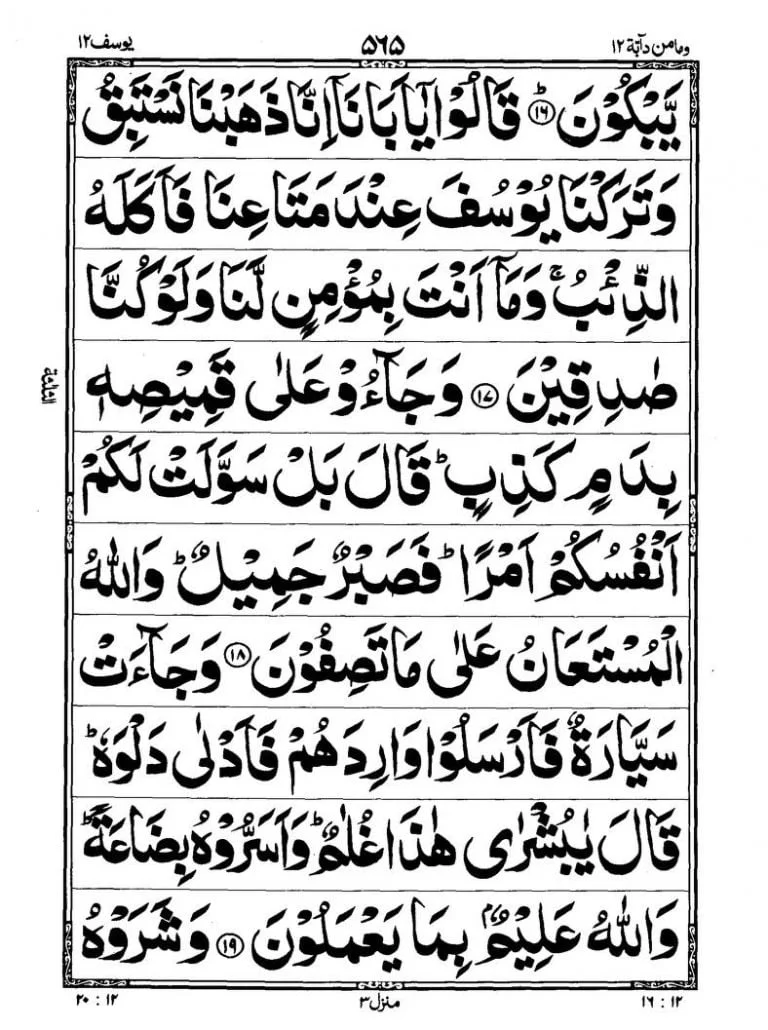 وما من دآبة ١٢ ۵۶۵ يوسف ١٢
يَّبْكُوْنَ ؕ﴿۱۶﴾ قَالُوْا يٰۤاَبَانَاۤ اِنَّا ذَهَبْنَا نَسْتَبِقُ
وَتَرَكْنَا يُوْسُفَ عِنْدَ مَتَاعِنَا فَاَكَلَهُ
الذِّئْبُ ۚ وَمَاۤ اَنْتَ بِمُؤْمِنٍ لَّنَا وَلَوْ كُنَّا
صٰدِقِيْنَ ﴿۱۷﴾ وَجَآءُوْ عَلٰى قَمِيْصِهٖ
الثلثة
بِدَمٍ كَذِبٍ ؕ قَالَ بَلْ سَوَّلَتْ لَكُمْ
اَنْفُسُكُمْ اَمْرًا ؕ فَصَبْرٌ جَمِيْلٌ ؕ وَاللّٰهُ
الْمُسْتَعَانُ عَلٰى مَا تَصِفُوْنَ ﴿۱۸﴾ وَجَآءَتْ
سَيَّارَةٌ فَاَرْسَلُوْا وَارِدَهُمْ فَاَدْلٰى دَلْوَهٗ ؕ
قَالَ يٰبُشْرٰى هٰذَا غُلٰمٌ ؕ وَاَسَرُّوْهُ بِضَاعَةً ؕ
وَاللّٰهُ عَلِيْمٌۢ بِمَا يَعْمَلُوْنَ ﴿۱۹﴾ وَشَرَوْهُ
١٢ : ١٦ منزل ٣ ١٢ : ٢٠